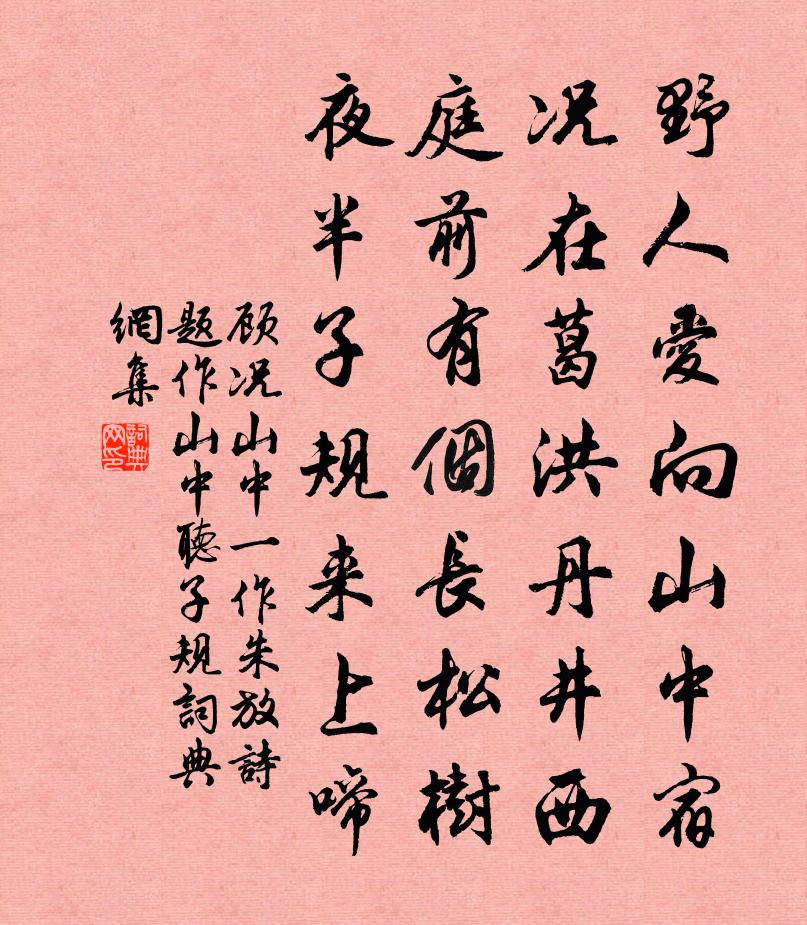 野人愛向山中宿
况在葛洪丹井西
庭前有個長松樹
夜半子規来上啼
顾况山中一作朱放詩
题作山中聴子規詞典
網集
詞典
网印